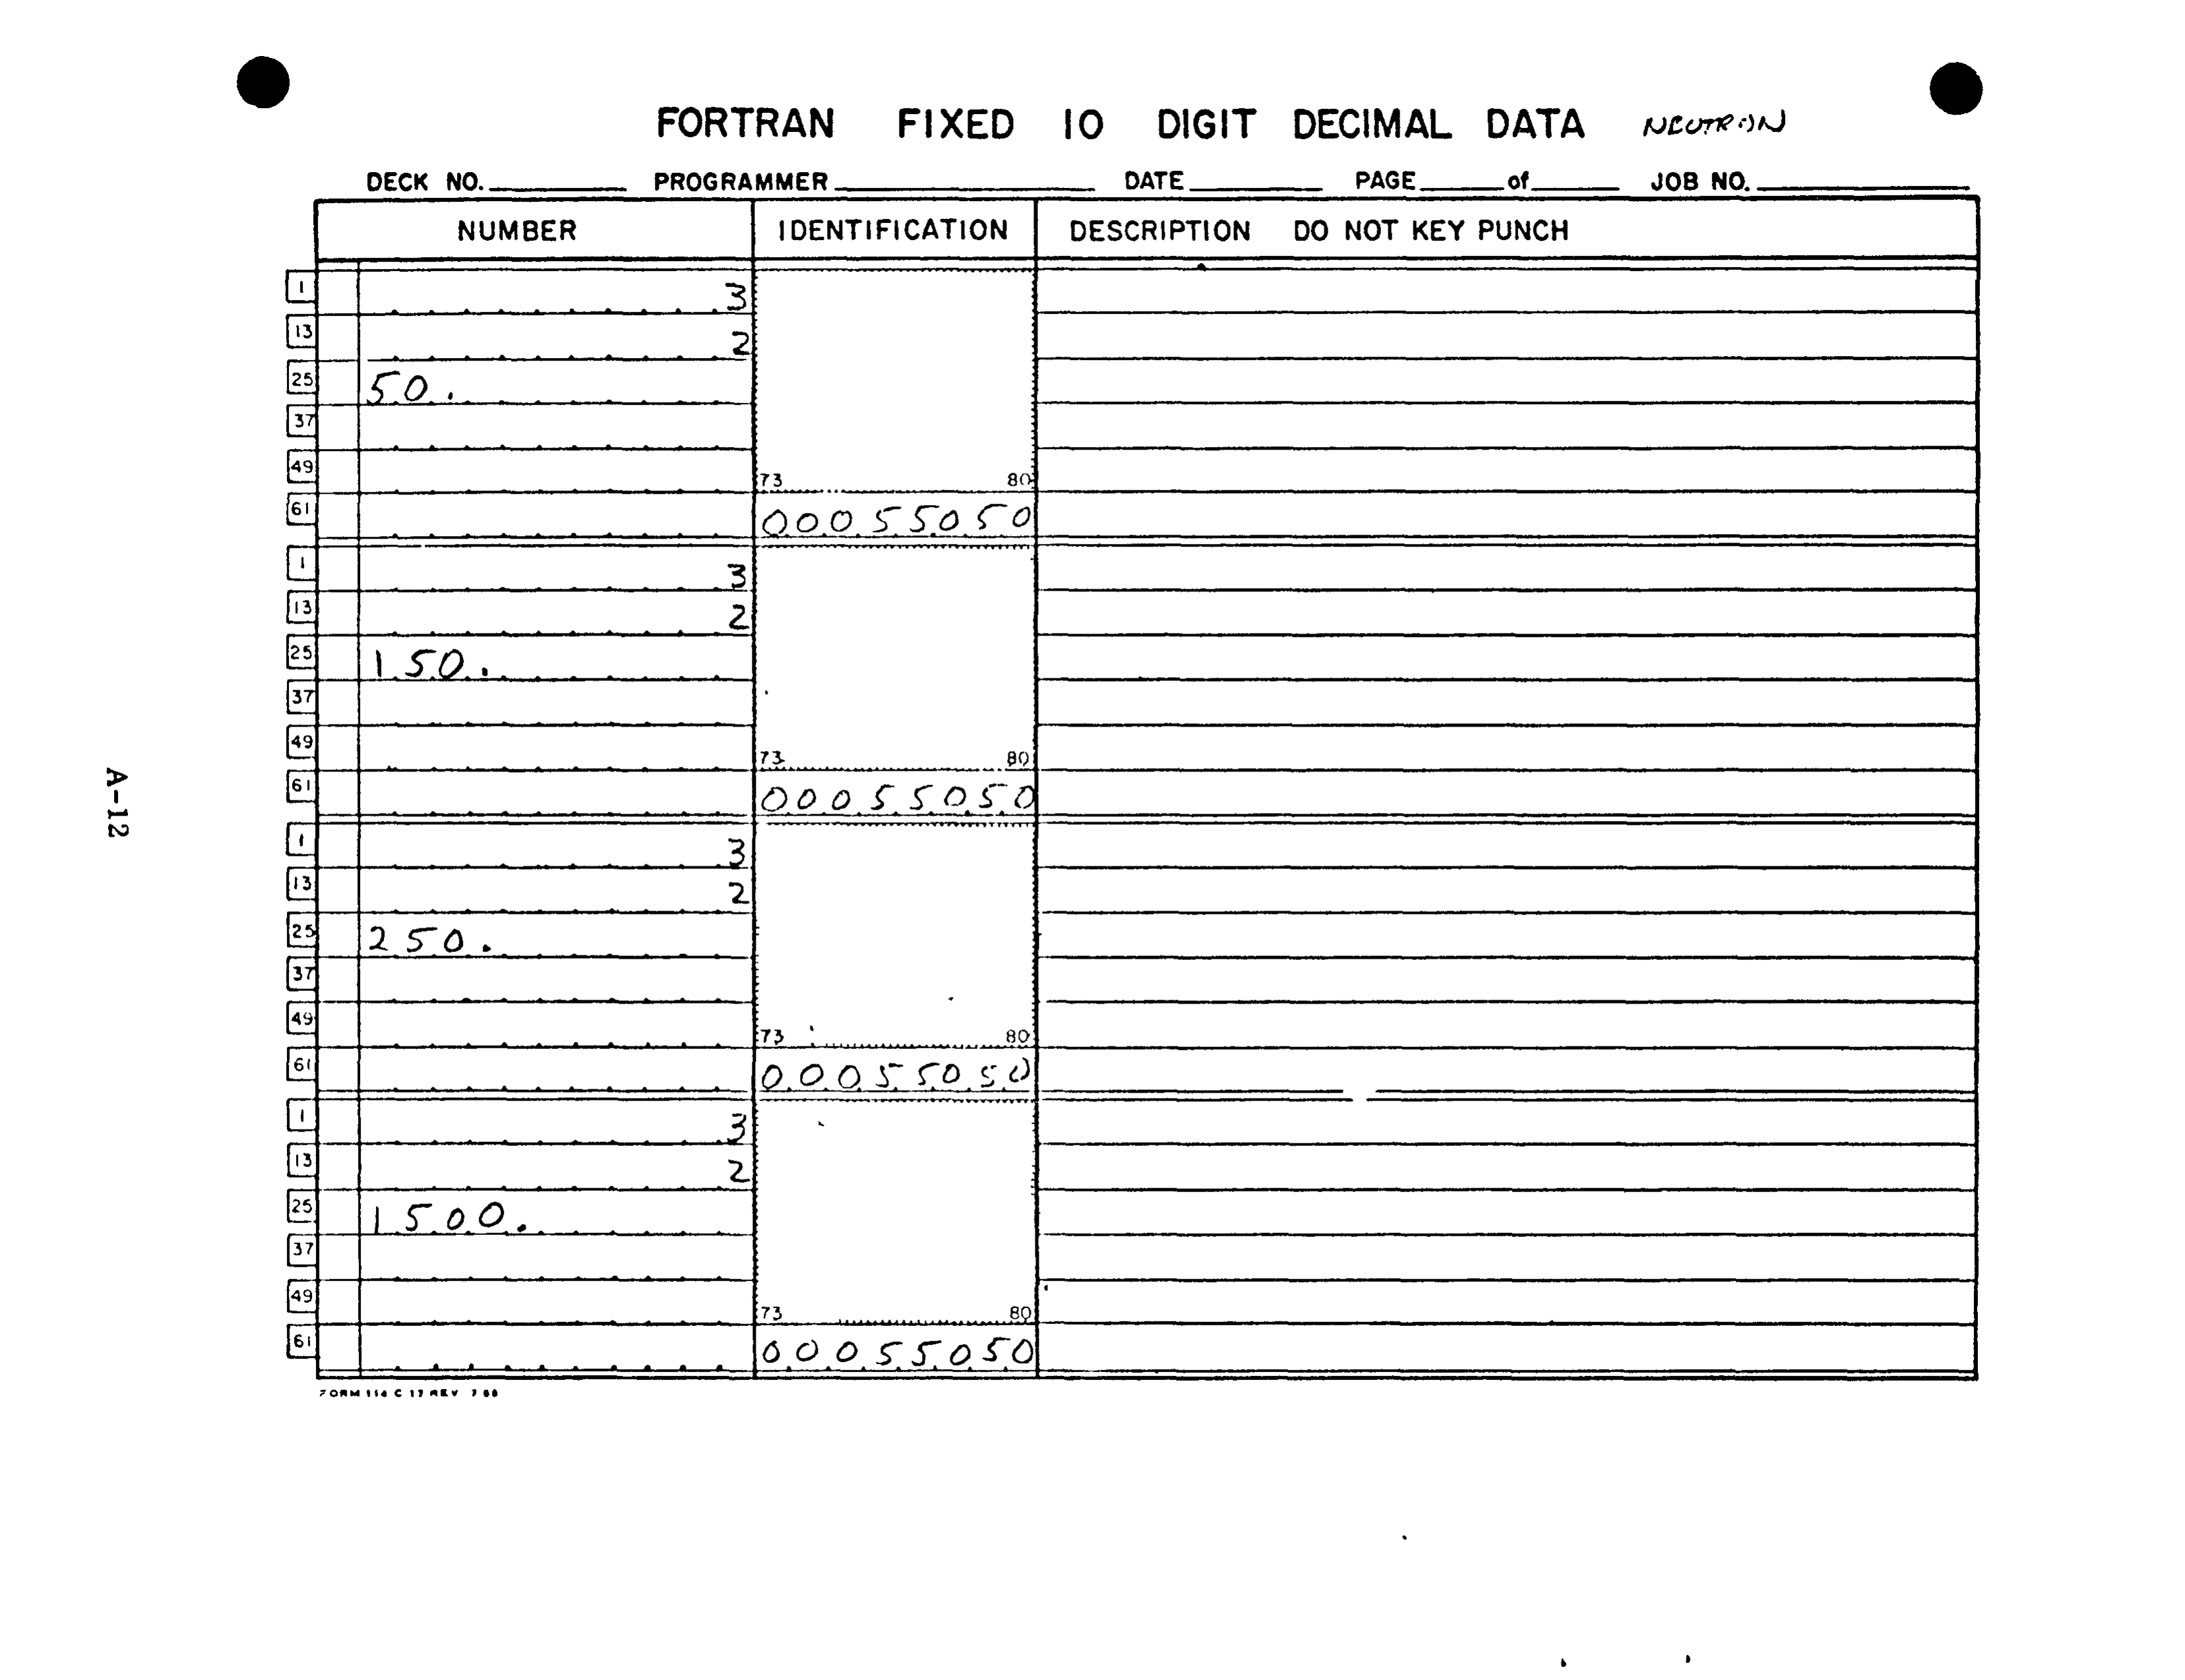 FORTRAN FIXED 10 DIGIT DECIMAL DATA NEUTRON
DECK NO. PROGRAMMER DATE PAGE of JOB NO.
NUMBER IDENTIFICATION DESCRIPTION DO NOT KEY PUNCH
1 3
13 2
25 50.
37
49 73 80
61 00055050
1 3
13 2
25 150.
37
49 73 80
61 00055050
1 3
13 2
25 250.
37
49 73 80
61 00055050
1 3
13 2
25 1500.
37
49 73 80
61 00055050
FORM 114 C 17 REV 7 68
A-12